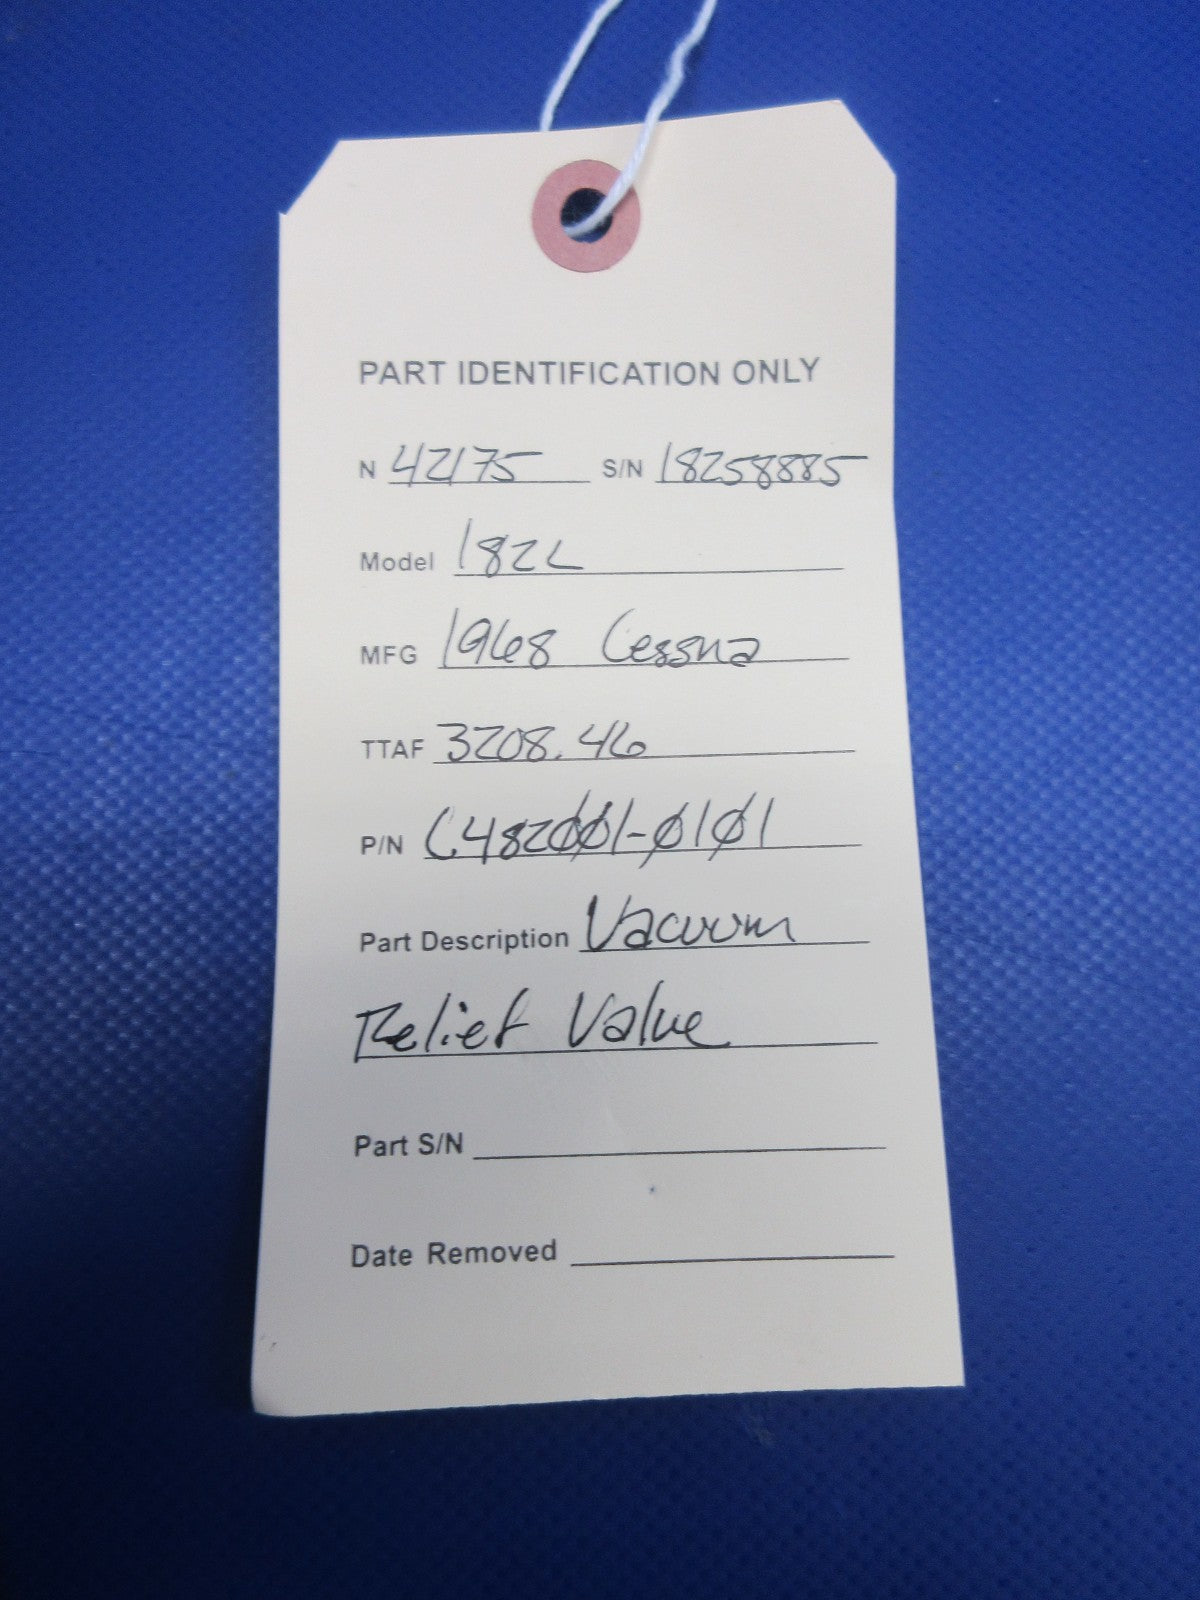 PART IDENTIFICATION ONLY
N 42175 S/N 18258885
Model 182L
MFG 1968 Cessna
TTAF 3208.46
P/N C482001-0101
Part Description Vacuum
Relief Valve
Part S/N
Date Removed